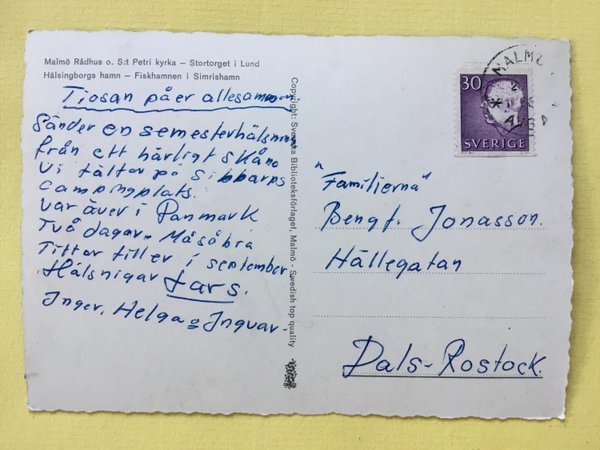 Malmö Rådhus o. S:t Petri kyrka – Stortorget i Lund
Hälsingborgs hamn – Fiskhamnen i Simrishamn
Tjosan på er allesammen
Sänder en semesterhälsning
från ett härligt Skåne
Vi tältar på Sibbarps
Campingplats.
Var även i Danmark
Två dagar.
Tittar till er i september
Hälsnigar Lars.
Inger, Helga o Ingvar.
Copyright: Svenska Biblioteksförlaget, Malmö - Swedish top quality
MALMÖ
AUG
30
SVERIGE
"Familjerna"
Bengt. Jonasson.
Hällegatan
Dals-Rostock.